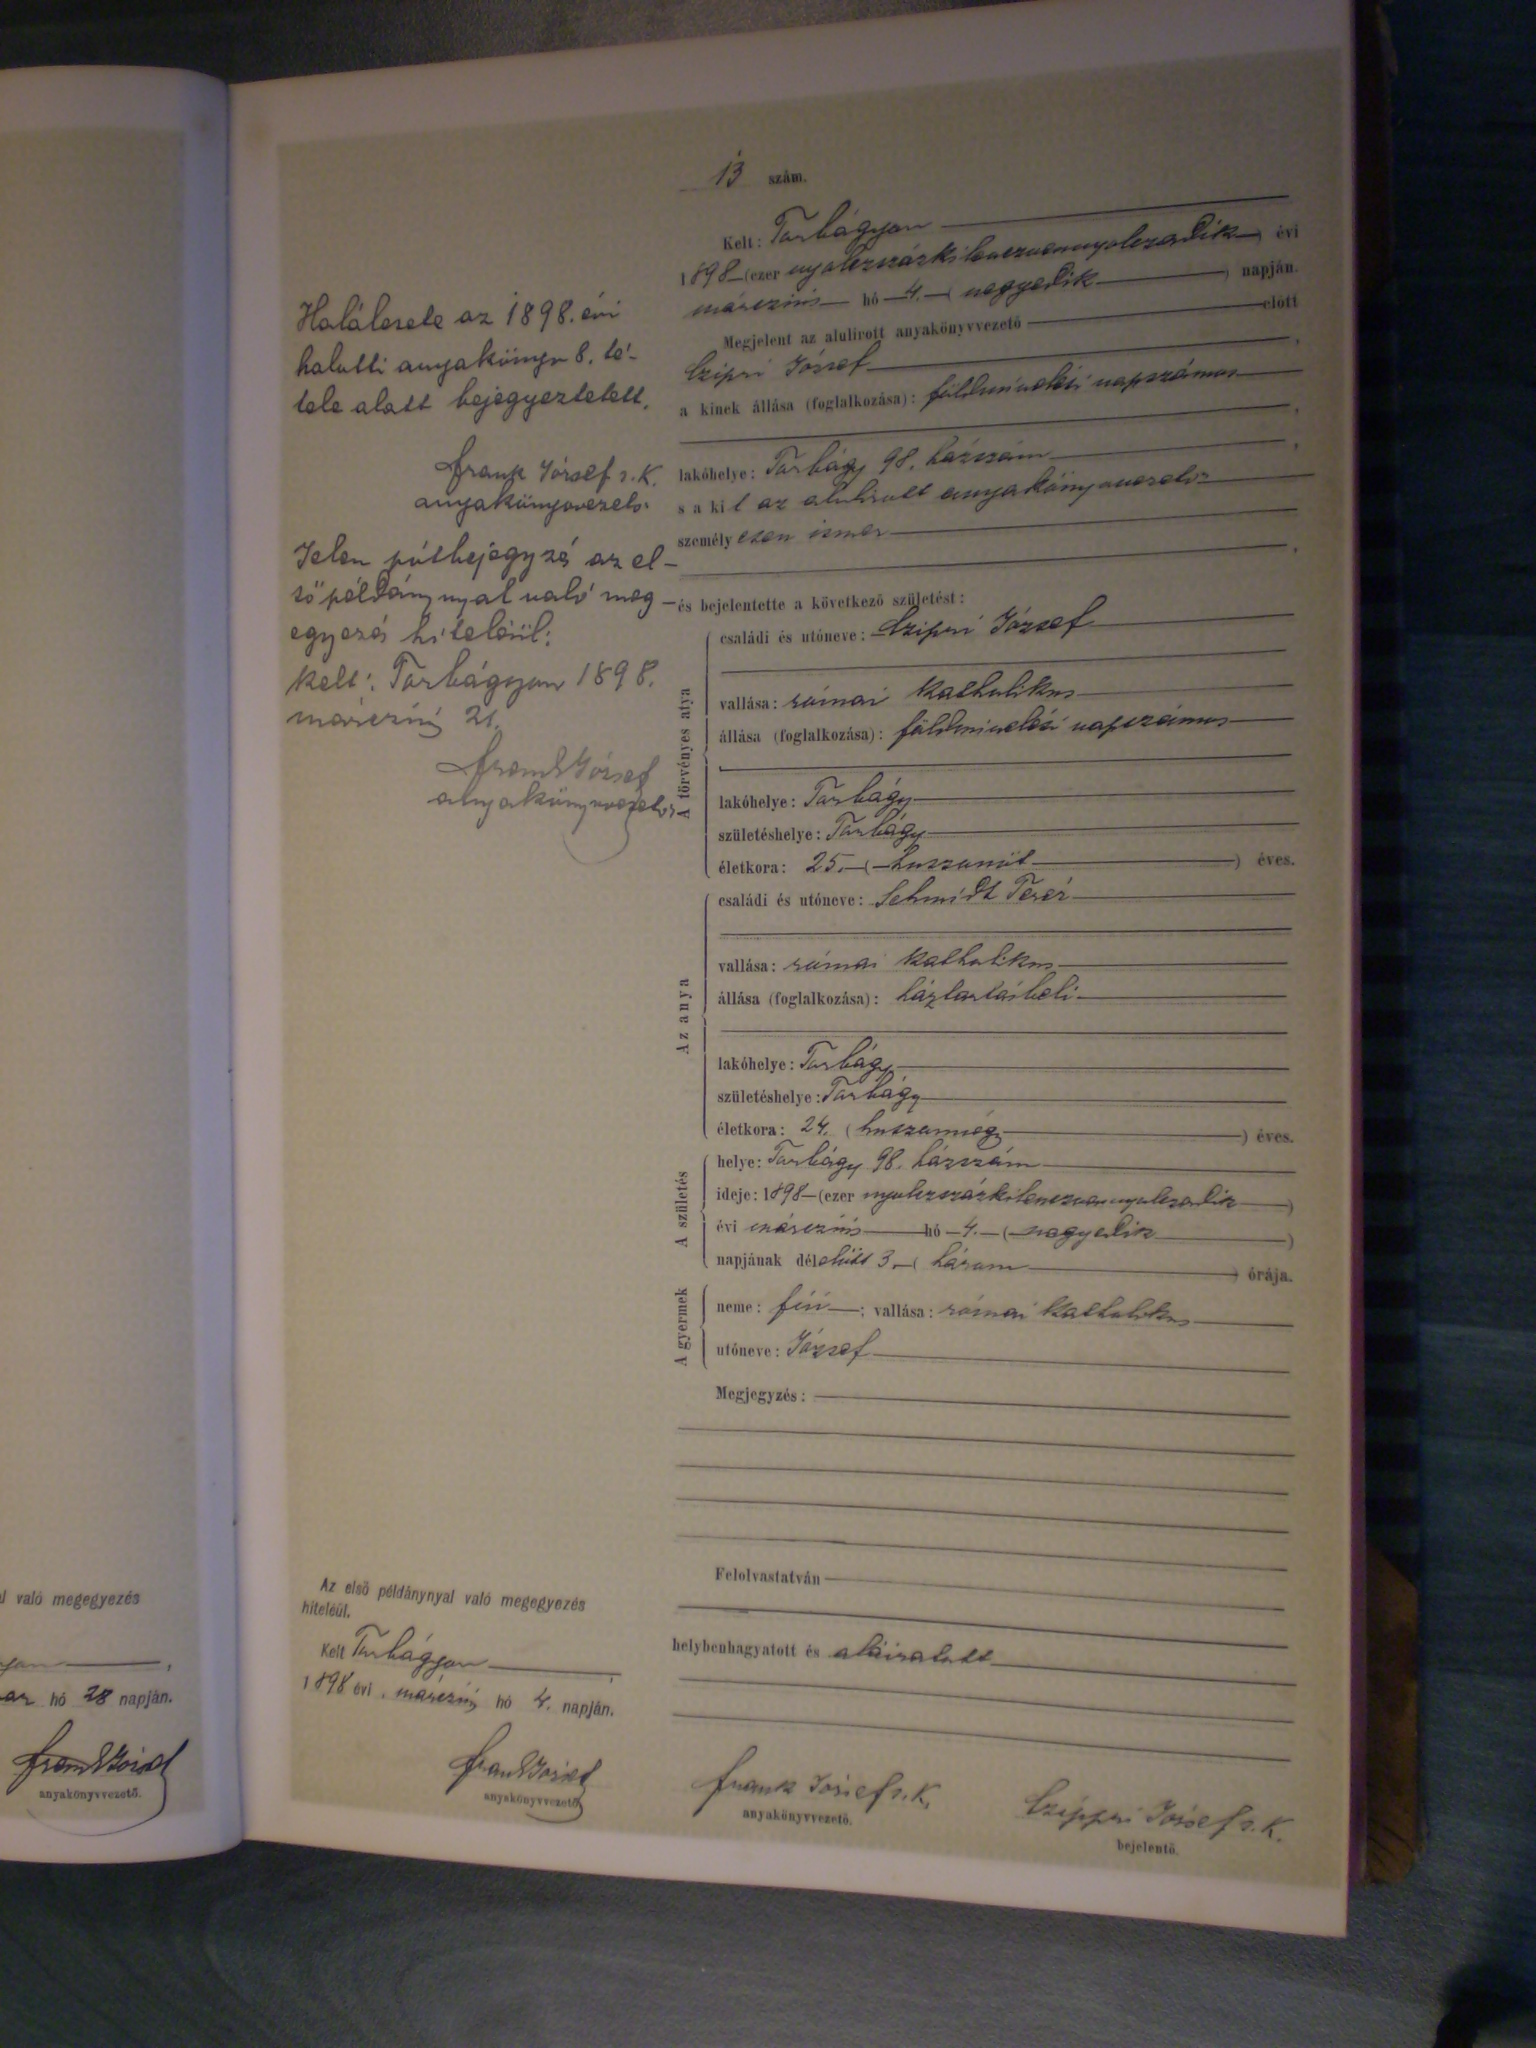 13 szám.
Kelt: Torbágyon
1898 (ezer nyolczszázkilenczvennyolczadik) évi
márczius hó 4. (negyedik) napján.
Megjelent az alulirott anyakönyvvezető előtt
Czipri József,
a kinek állása (foglalkozása): földmivelési napszámos,
lakóhelye: Torbágy 98. házszám,
s a kit az alulirott anyakönyvvezető
személyesen ismer,
és bejelentette a következő születést:
A törvényes atya
családi és utóneve: Czipri József
vallása: római katholikus
állása (foglalkozása): földmivelési napszámos
lakóhelye: Torbágy
születéshelye: Torbágy
életkora: 25. (huszonöt) éves.
Az anya
családi és utóneve: Schmidt Teréz
vallása: római katholikus
állása (foglalkozása): háztartásbeli
lakóhelye: Torbágy
születéshelye: Torbágy
életkora: 24. (huszonnégy) éves.
A születés
helye: Torbágy 98. házszám
ideje: 1898 (ezer nyolczszázkilenczvennyolczadik)
évi márczius hó 4. (negyedik)
napjának délelőtt 3. (három) órája.
A gyermek
neme: fiú; vallása: római katholikus
utóneve: József
Megjegyzés:
Felolvastatván
helybenhagyatott és aláiratott
Frank József s. k.
anyakönyvvezető.
Czippri József s. k.
bejelentő.
Halálesete az 1898. évi
halotti anyakönyv 8. té-
tele alatt bejegyeztetett.
Frank József s. k.
anyakönyvvezető.
Jelen pótbejegyzés az el-
ső példánynyal való meg-
egyezés hiteléül:
Kelt: Torbágyon 1898.
márczius 21.
Frank József
anyakönyvvezető
Az első példánynyal való megegyezés
hiteléül.
Kelt Torbágyon,
1898 évi márczius hó 4. napján.
Frank József
anyakönyvvezető.
való megegyezés
hó 28 napján.
Frank József
anyakönyvvezető.